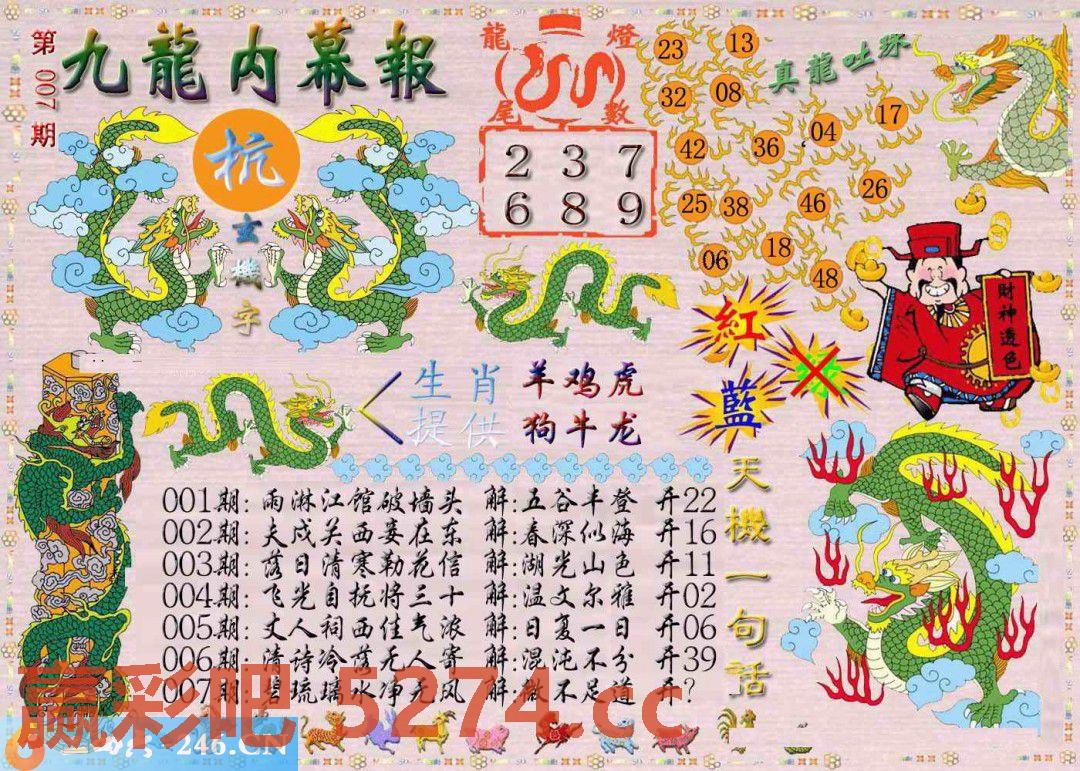 第007期
九龍内幕報
抗
玄機字
龍燈尾數
2 3 7
6 8 9
真龍吐珠
23 13
32 08
42 36 04 17
25 38 46 26
06 18 48
紅
藍
財神透色
生肖提供
羊鸡虎
狗牛龙
天機一句话
001期:雨淋江馆破墙头 解:五谷丰登 开22
002期:夫戍关西妾在东 解:春深似海 开16
003期:落日清寒勒花信 解:湖光山色 开11
004期:飞光自抚将三十 解:温文尔雅 开02
005期:丈人祠西佳气浓 解:日复一日 开06
006期:清诗冷落无人寄 解:混沌不分 开39
007期:碧琉璃水净无风 解:微不足道 开?
赢彩吧 5274.cc
246.CN